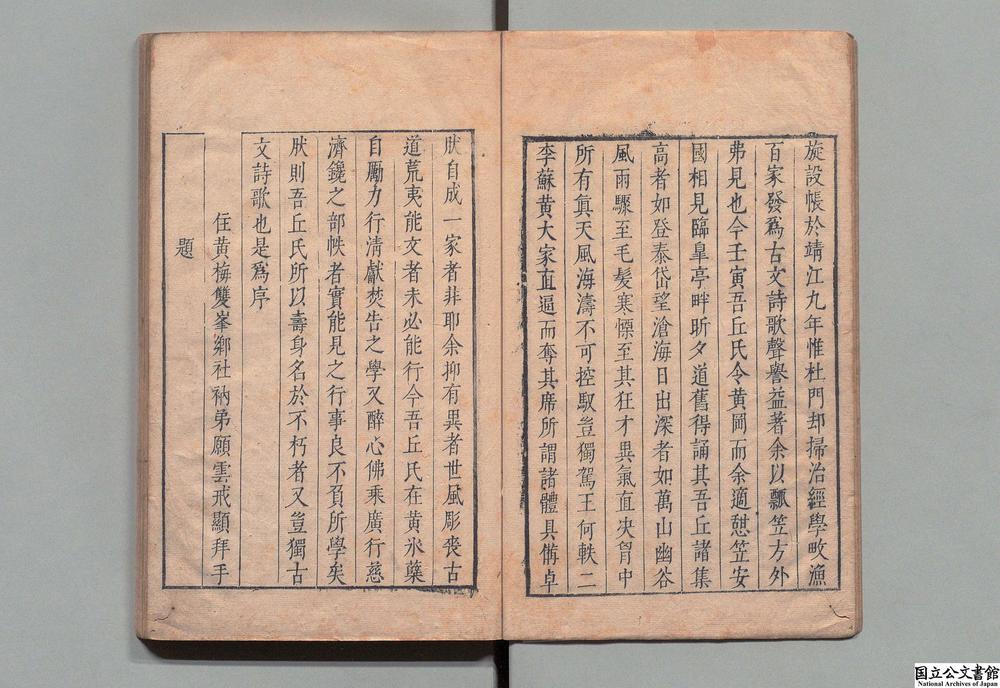 旋設帳於靖江九年惟杜門却掃治經學畋漁
百家發爲古文詩歌聲譽益著余以瓢笠方外
弗見也今壬寅吾丘氏令黄岡而余適憩笠安
國相見臨臯亭畔昕夕道舊得誦其吾丘諸集
高者如登泰岱望滄海日出深者如萬山幽谷
風雨驟至毛髮寒慄至其狂才異氣直决胷中
所有眞天風海濤不可控馭豈獨駕王何軼二
李蘇黄大家直逼而奪其席所謂諸體具備卓
肰自成一家者非耶余抑有異者世風彫喪古
道荒夷能文者未必能行今吾丘氏在黄氷蘗
自勵力行清獻焚告之學又醉心佛乘廣行慈
濟鑱之部帙者實能見之行事良不負所學矣
肰則吾丘氏所以壽身名於不朽者又豈獨古
文詩歌也是爲序
住黄梅雙峯鄉社衲弟願雲戒顯拜手
題
国立公文書館
National Archives of Japan